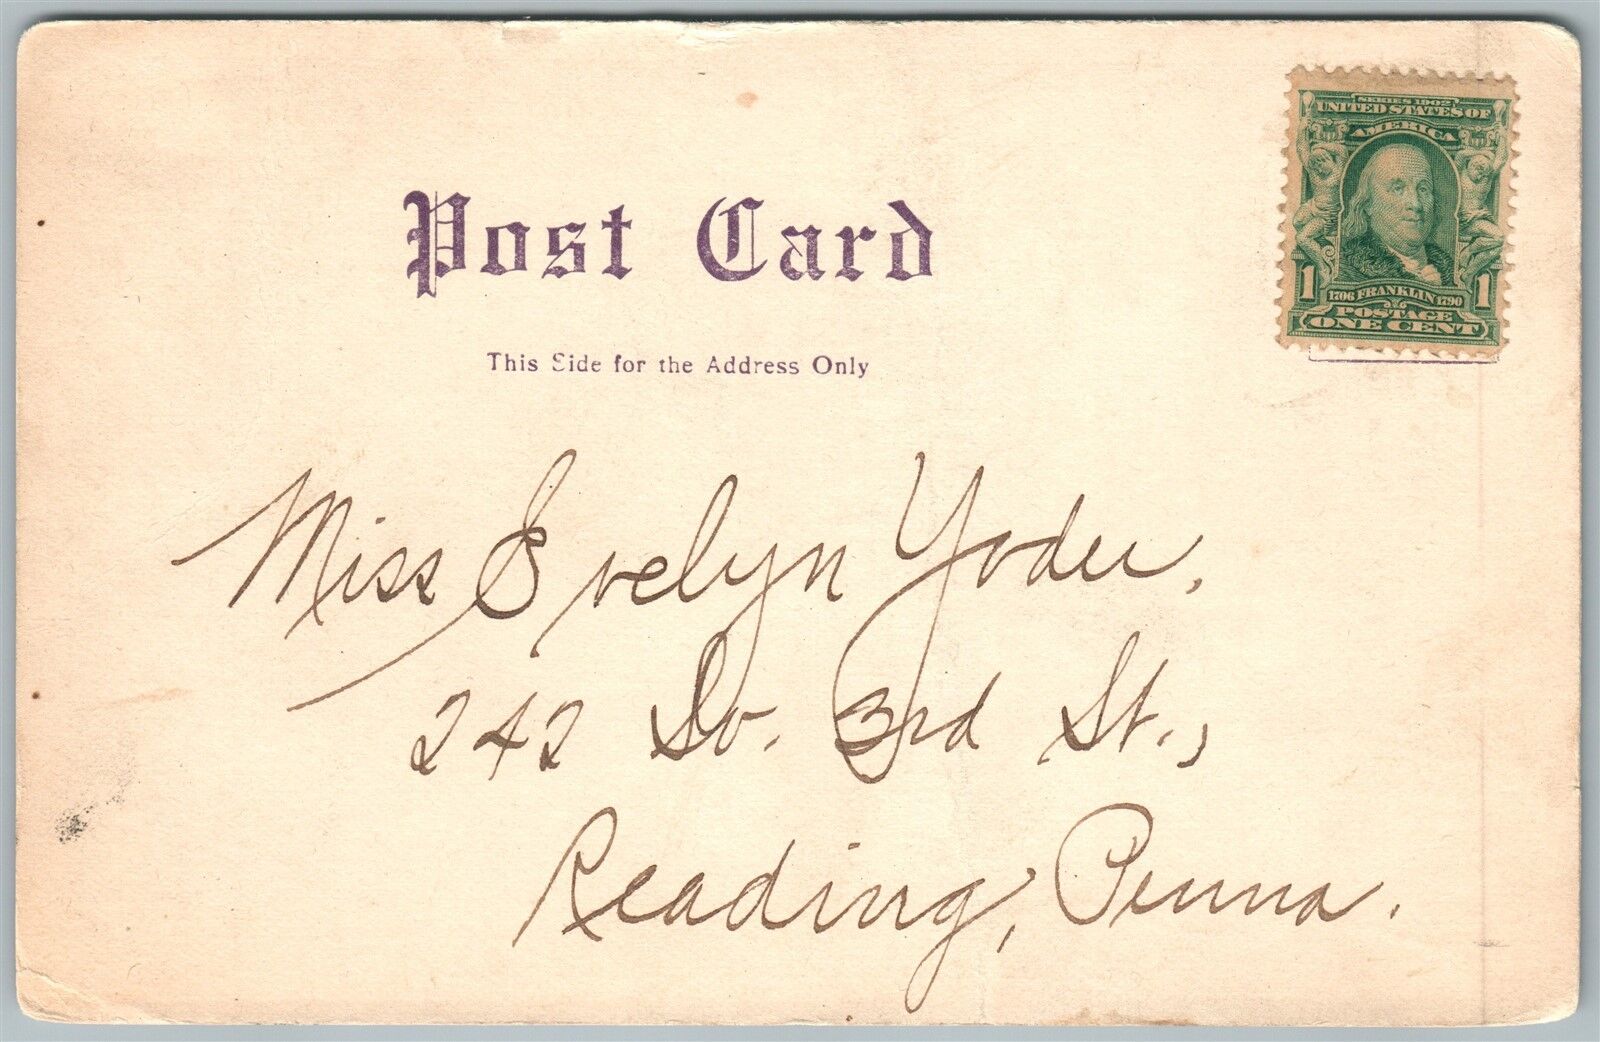 Post Card
This Side for the Address Only
SERIES 1902
UNITED STATES OF
AMERICA
1 1706 FRANKLIN 1790 1
POSTAGE
ONE CENT
Miss Evelyn Yoder,
242 So. 3rd St.,
Reading, Penna.